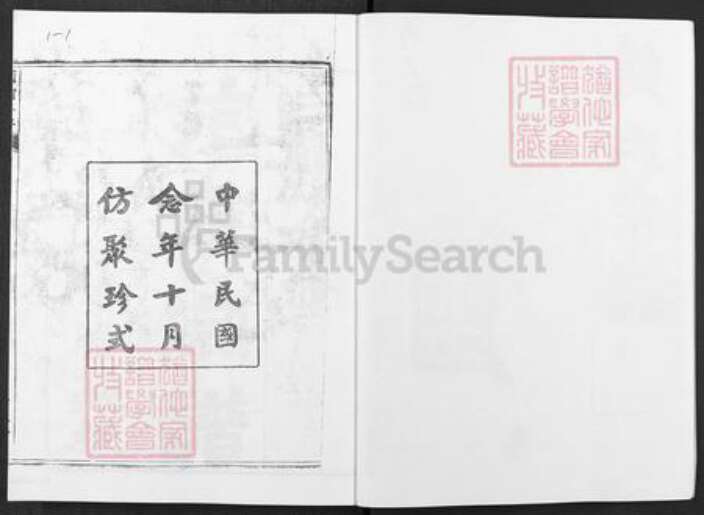 1-1
中華民國
念年十月
仿聚珍式
猶他家
譜學會
收藏
猶他家
譜學會
收藏
FamilySearch